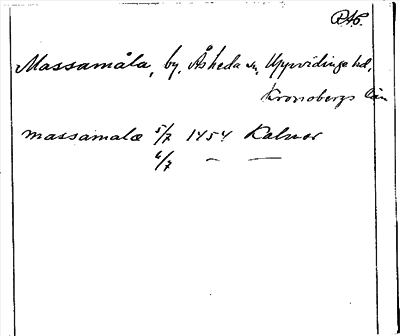 RAP.
Massamåla, by, Åsheda sn, Uppvidinge hd,
Kronobergs län
massamala 5/7 1454 Kalmar
6/7 – —